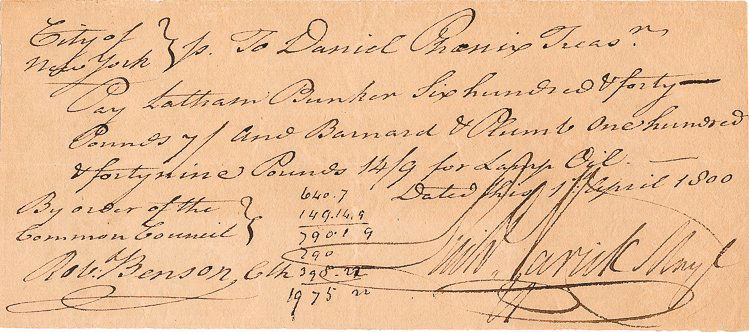 City of
New York } ss. To Daniel Phœnix Treasr
Pay Latham Bunker Six hundred & forty
Pounds 7/ And Barnard & Plumb One hundred
& forty nine Pounds 14/9 for Lamp Oil. —
Dated this 1 April 1800
By order of the
Common Council }
Robt. Benson, Clk
640.7
149.14.9
790.1.9
790
398.22
1975 22
Richd Varick Mayr